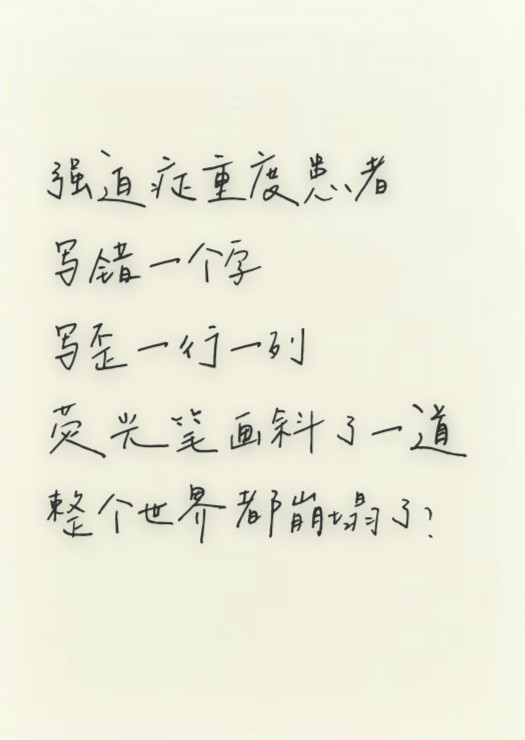 强迫症重度患者
写错一个字
写歪一行一列
荧光笔画斜了一道
整个世界都崩塌了?